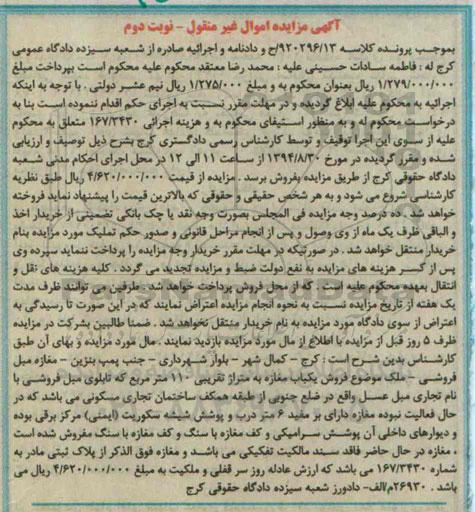 آگهی مزایده اموال غیر منقول - نوبت دوم
بموجب پرونده کلاسه ۹۲۰۲۹۶/۱۳/ح و دادنامه و اجرائیه صادره از شعبه سیزده دادگاه عمومی
کرج له : فاطمه سادات حسینی علیه : محمد رضا معتقد محکوم علیه محکوم است بپرداخت مبلغ
۱/۲۷۹/۰۰۰/۰۰۰ ریال بعنوان محکوم به و مبلغ ۱/۲۷۵/۰۰۰ ریال نیم عشر دولتی . با توجه به اینکه
اجرائیه به محکوم علیه ابلاغ گردیده و در مهلت مقرر نسبت به اجرای حکم اقدام ننموده است بنا به
درخواست محکوم له و به منظور استیفای محکوم به و هزینه اجرائی ۱۶۷/۳۴۳۰ متعلق به محکوم
علیه از سوی این اجرا توقیف و توسط کارشناس رسمی دادگستری کرج بشرح ذیل توصیف و ارزیابی
شده و مقرر گردیده در مورخ ۱۳۹۴/۸/۳۰ از ساعت ۱۱ الی ۱۲ در محل اجرای احکام مدنی شعبه
دادگاه حقوقی کرج از طریق مزایده بفروش برسد . مزایده از قیمت ۴/۶۲۰/۰۰۰/۰۰۰ ریال طبق نظریه
کارشناسی شروع می شود و به هر شخص حقیقی و حقوقی که بالاترین قیمت را پیشنهاد نماید فروخته
خواهد شد . ده درصد وجه مزایده فی المجلس بصورت وجه نقد یا چک بانکی تضمینی از خریدار اخذ
و الباقی ظرف یک ماه از وی وصول و پس از انجام مراحل قانونی و صدور حکم تملیک مورد مزایده بنام
خریدار منتقل خواهد شد . در صورتیکه در مهلت مقرر خریدار وجه مزایده را پرداخت ننماید سپرده وی
پس از کسر هزینه های مزایده به نفع دولت ضبط و مزایده تجدید می گردد . کلیه هزینه های نقل و
انتقال بعهده محکوم علیه است . که از محل فروش پرداخت خواهد شد. طرفین می توانند ظرف مدت
یک هفته از تاریخ مزایده نسبت به نحوه انجام مزایده اعتراض نمایند که در این صورت تا رسیدگی به
اعتراض از سوی دادگاه مورد مزایده به نام خریدار منتقل نخواهد شد . ضمنا طالبین بشرکت در مزایده
ظرف ۵ روز قبل از مزایده با اطلاع از مال مورد مزایده بازدید نمایند . مال مورد مزایده و بهای آن طبق
کارشناس بدین شرح است : کرج - کمال شهر - بلوار شهرداری - جنب پمپ بنزین - مغازه مبل
فروشی - ملک موضوع فروش یکباب مغازه به متراژ تقریبی ۱۱۰ متر مربع که تابلوی مبل فروشی با
نام تجاری مبل عسل واقع در ضلع جنوبی از طبقه همکف ساختمان تجاری مسکونی می باشد که در
حال فعالیت نبوده مغازه دارای بر مفید ۶ متر درب و پوشش شیشه سکوریت (ایمنی) مرکز برقی بوده
و دیوارهای داخلی آن پوشش سرامیکی و کف مغازه با سنگ و کف مغازه با سنگ مفروش شده است
، مغازه در حال حاضر فاقد سند مالکیت تفکیکی می باشد و مغازه فوق الذکر از پلاک ثبتی مادر به
شماره ۱۶۷/۳۴۳۰ می باشد که ارزش عادله روز سر قفلی و ملکیت به مبلغ ۴/۶۲۰/۰۰۰/۰۰۰ ریال می
باشد . ۲۶۹۳۰م/الف- دادورز شعبه سیزده دادگاه حقوقی کرج